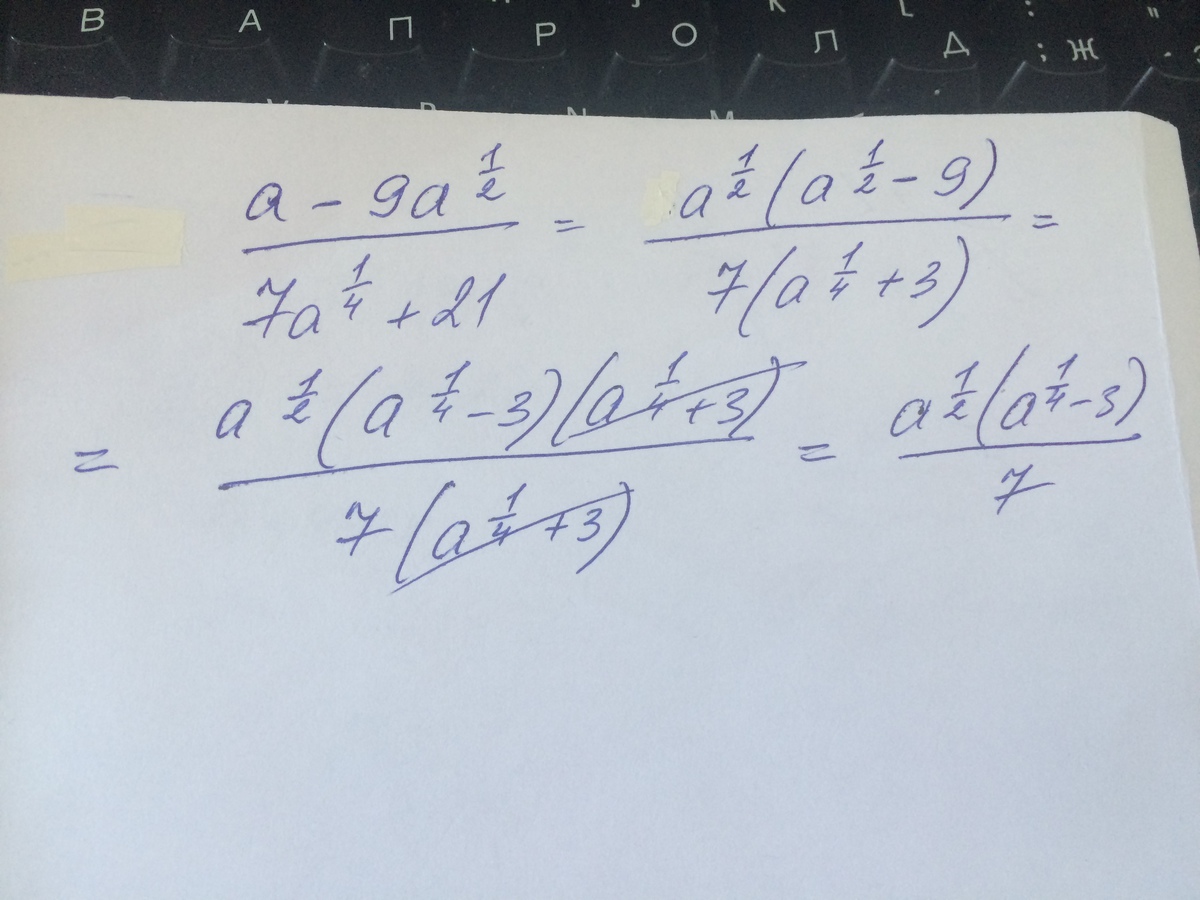 В А П Р О Л Д ; Ж
a - 9a^{1/2} / 7a^{1/4} + 21 = a^{1/2}(a^{1/2} - 9) / 7(a^{1/4} + 3) =
= a^{1/2}(a^{1/4} - 3)(a^{1/4} + 3) / 7(a^{1/4} + 3) = a^{1/2}(a^{1/4} - 3) / 7